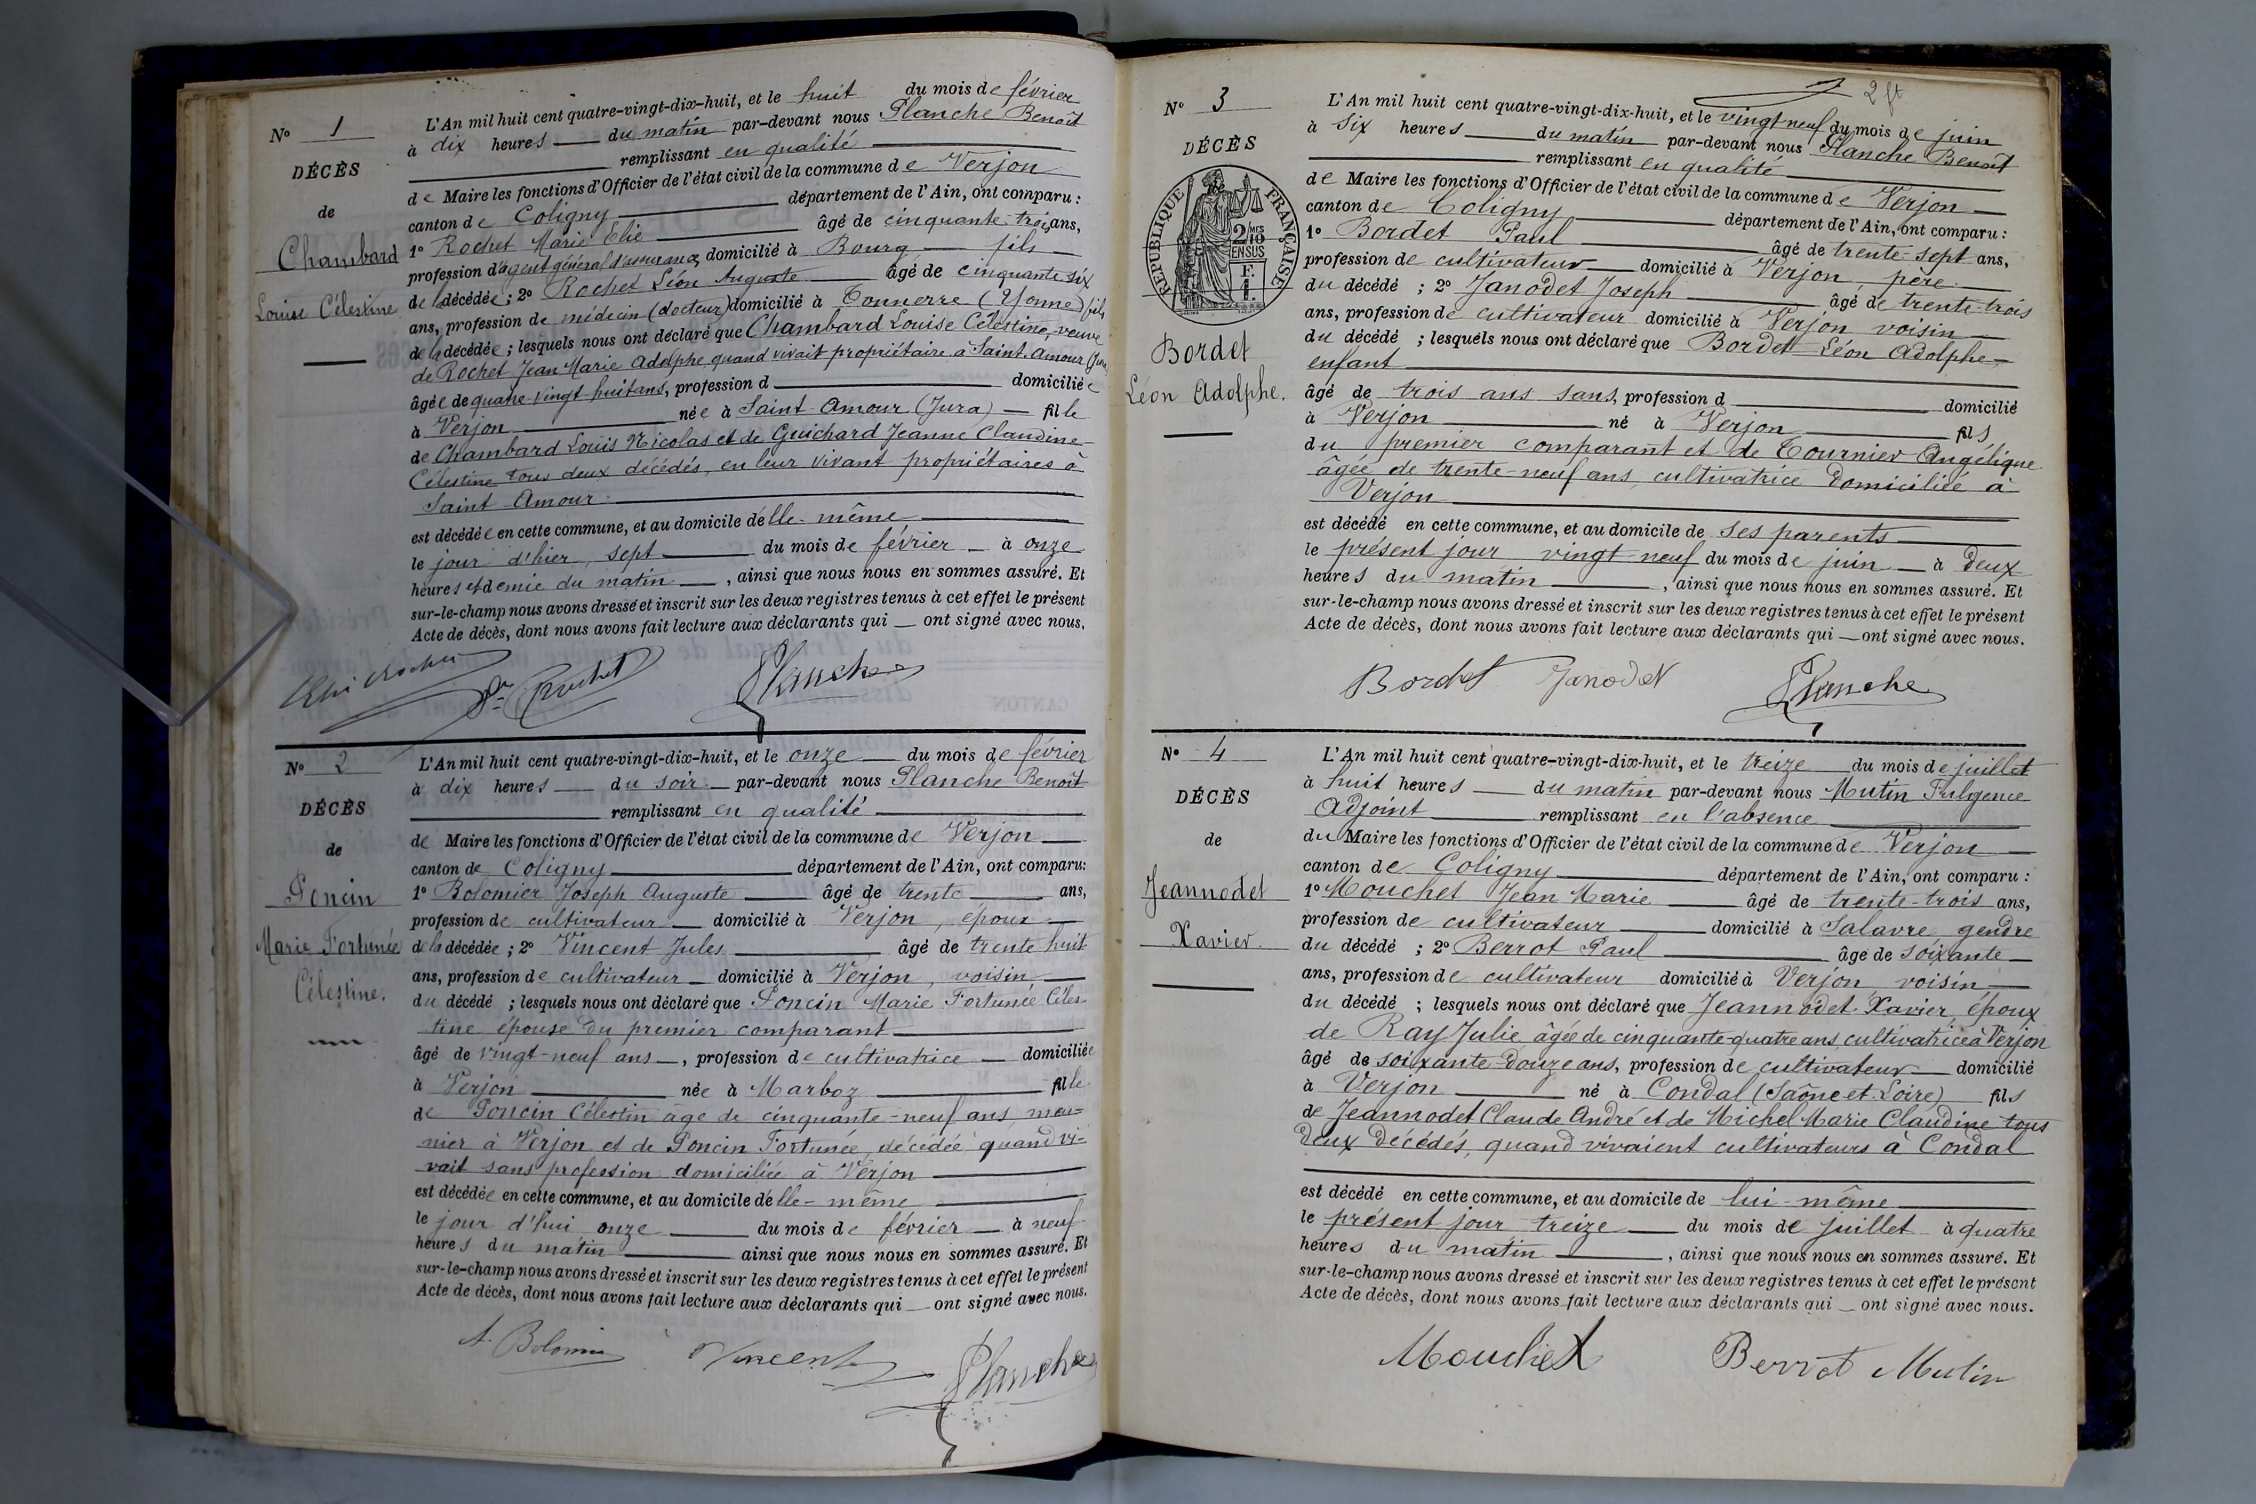 N° 1
DÉCÈS
de
Chambard
Louise Célestine
L'An mil huit cent quatre-vingt-dix-huit, et le huit du mois de février
à dix heures du matin par-devant nous Planche Benoît
remplissant en qualité
de Maire les fonctions d'Officier de l'état civil de la commune de Verjon
canton de Coligny département de l'Ain, ont comparu :
1° Rochet Marie Elie âgé de cinquante-trois ans,
profession d'agent général d'assurances, domicilié à Bourg fils
de la décédée ; 2° Rochet Léon Auguste âgé de cinquante six
ans, profession de médecin (docteur) domicilié à Tonnerre (Yonne) fils
de la décédée ; lesquels nous ont déclaré que Chambard Louise Célestine, veuve
de Rochet Jean Marie Adolphe quand vivait propriétaire à Saint-Amour (Jura)
âgée de quatre-vingt-huit ans, profession d domiciliée
à Verjon née à Saint-Amour (Jura) fille
de Chambard Louis Nicolas et de Guichard Jeanne Claudine
Célestine tous deux décédés, en leur vivant propriétaires à
Saint Amour
est décédée en cette commune, et au domicile d'elle-même
le jour d'hier, sept du mois de février à onze
heures et demie du matin, ainsi que nous nous en sommes assuré. Et
sur-le-champ nous avons dressé et inscrit sur les deux registres tenus à cet effet le présent
Acte de décès, dont nous avons fait lecture aux déclarants qui ont signé avec nous.
Elie Rochet Dr Rochet Planche
N° 2
DÉCÈS
de
Poncin
Marie Fortunée
Célestine.
L'An mil huit cent quatre-vingt-dix-huit, et le onze du mois de février
à dix heures du soir par-devant nous Planche Benoît
remplissant en qualité
de Maire les fonctions d'Officier de l'état civil de la commune de Verjon
canton de Coligny département de l'Ain, ont comparu:
1° Bolomier Joseph Auguste âgé de trente ans,
profession de cultivateur domicilié à Verjon, époux
de la décédée ; 2° Vincent Jules âgé de trente huit
ans, profession de cultivateur domicilié à Verjon, voisin
du décédé ; lesquels nous ont déclaré que Poncin Marie Fortunée Céles-
tine épouse du premier comparant
âgé de vingt-neuf ans, profession de cultivatrice domiciliée
à Verjon née à Marboz fille
de Poncin Célestin âgé de cinquante-neuf ans, meu=
nier à Verjon et de Poncin Fortunée, décédée quand vi=
vait sans profession domiciliée à Verjon
est décédée en cette commune, et au domicile d'elle-même
le jour d'hui onze du mois de février à neuf
heures du matin ainsi que nous nous en sommes assuré. Et
sur-le-champ nous avons dressé et inscrit sur les deux registres tenus à cet effet le présent
Acte de décès, dont nous avons fait lecture aux déclarants qui ont signé avec nous.
A. Bolomier Vincent Planche
2 ft
N° 3
DÉCÈS
RÉPUBLIQUE FRANÇAISE
2/10 MES
EN SUS
F.
1.
Bordet
Léon Adolphe.
L'An mil huit cent quatre-vingt-dix-huit, et le vingt neuf du mois de juin
à six heures du matin par-devant nous Planche Benoît
remplissant en qualité
de Maire les fonctions d'Officier de l'état civil de la commune de Verjon
canton de Coligny département de l'Ain, ont comparu :
1° Bordet Paul âgé de trente-sept ans,
profession de cultivateur domicilié à Verjon père
du décédé ; 2° Janodet Joseph âgé de trente-trois
ans, profession de cultivateur domicilié à Verjon voisin
du décédé ; lesquels nous ont déclaré que Bordet Léon Adolphe
enfant
âgé de trois ans sans, profession d domicilié
à Verjon né à Verjon fils
du premier comparant et de Tournier Angélique
âgée de trente-neuf ans, cultivatrice domiciliée à
Verjon
est décédé en cette commune, et au domicile de ses parents
le présent jour vingt-neuf du mois de juin à deux
heures du matin, ainsi que nous nous en sommes assuré. Et
sur-le-champ nous avons dressé et inscrit sur les deux registres tenus à cet effet le présent
Acte de décès, dont nous avons fait lecture aux déclarants qui ont signé avec nous.
Bordet Janodet Planche
N° 4
DÉCÈS
de
Jeannodet
Xavier.
L'An mil huit cent quatre-vingt-dix-huit, et le treize du mois de juillet
à huit heures du matin par-devant nous Mutin Fulgence
Adjoint remplissant en l'absence
du Maire les fonctions d'Officier de l'état civil de la commune de Verjon
canton de Coligny département de l'Ain, ont comparu :
1° Mouchet Jean Marie âgé de trente-trois ans,
profession de cultivateur domicilié à Salavre gendre
du décédé ; 2° Berrot Paul âgé de soixante
ans, profession de cultivateur domicilié à Verjon voisin
du décédé ; lesquels nous ont déclaré que Jeannodet Xavier, époux
de Ray Julie âgée de cinquante-quatre ans cultivatrice à Verjon
âgé de soixante-douze ans, profession de cultivateur domicilié
à Verjon né à Condal (Saône-et-Loire) fils
de Jeannodet Claude André et de Michel Marie Claudine tous
deux décédés, quand vivaient cultivateurs à Condal
est décédé en cette commune, et au domicile de lui-même
le présent jour treize du mois de juillet à quatre
heures du matin, ainsi que nous nous en sommes assuré. Et
sur-le-champ nous avons dressé et inscrit sur les deux registres tenus à cet effet le présent
Acte de décès, dont nous avons fait lecture aux déclarants qui ont signé avec nous.
Mouchet Berrot Mutin